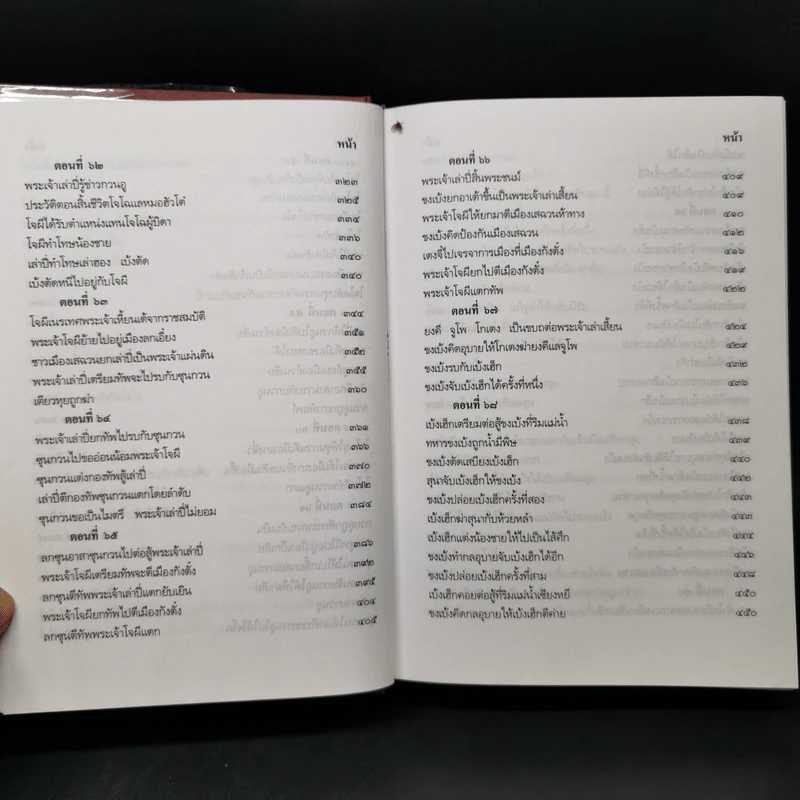 หน้า
ตอนที่ ๖๒
พระเจ้าเล่าปี่รู้ข่าวกวนอู ๓๒๓
ประวัติตอนสิ้นชีวิตโจโฉแลหมอฮัวโต๋ ๓๒๕
โจผีได้รับตำแหน่งแทนโจโฉผู้บิดา ๓๓๔
โจผีทำโทษน้องชาย ๓๓๖
เล่าปี่ทำโทษเล่าฮอง เบ้งตัด ๓๔๐
เบ้งตัดหนีไปอยู่กับโจผี ๓๔๐
ตอนที่ ๖๓
โจผีเนรเทศพระเจ้าเหี้ยนเต้จากราชสมบัติ ๓๔๔
พระเจ้าโจผีย้ายไปอยู่เมืองลกเอี๋ยง ๓๕๑
ชาวเมืองเสฉวนยกเล่าปี่เป็นพระเจ้าแผ่นดิน ๓๕๒
พระเจ้าเล่าปี่เตรียมทัพจะไปรบกับซุนกวน ๓๕๕
เตียวหุยถูกฆ่า ๓๖๐
ตอนที่ ๖๔
พระเจ้าเล่าปี่ยกทัพไปรบกับซุนกวน ๓๖๑
ซุนกวนไปขออ่อนน้อมพระเจ้าโจผี ๓๖๖
ซุนกวนแต่งกองทัพสู้เล่าปี่ ๓๗๐
เล่าปี่ตีกองทัพซุนกวนแตกโดยลำดับ ๓๗๒
ซุนกวนขอเป็นไมตรี พระเจ้าเล่าปี่ไม่ยอม ๓๘๔
ตอนที่ ๖๕
ลกซุนอาสาซุนกวนไปต่อสู้พระเจ้าเล่าปี่ ๓๘๖
พระเจ้าโจผีเตรียมทัพจะตีเมืองกังตั๋ง ๓๙๒
ลกซุนตีทัพพระเจ้าเล่าปี่แตกยับเยิน ๓๙๕
พระเจ้าโจผียกทัพไปตีเมืองกังตั๋ง ๔๐๔
ลกซุนตีทัพพระเจ้าโจผีแตก ๔๐๕
หน้า
ตอนที่ ๖๖
พระเจ้าเล่าปี่สิ้นพระชนม์ ๔๐๙
ขงเบ้งยกอาเต๊าขึ้นเป็นพระเจ้าเล่าเสี้ยน ๔๐๙
พระเจ้าโจผีให้ยกมาตีเมืองเสฉวนห้าทาง ๔๑๐
ขงเบ้งคิดป้องกันเมืองเสฉวน ๔๑๒
เตงจี๋ไปเจรจาการเมืองที่เมืองกังตั๋ง ๔๑๖
พระเจ้าโจผียกไปตีเมืองกังตั๋ง ๔๑๙
พระเจ้าโจผีแตกทัพ ๔๒๒
ตอนที่ ๖๗
ยงคี จูโพ โกเตง เป็นขบถต่อพระเจ้าเล่าเสี้ยน ๔๒๔
ขงเบ้งคิดอุบายให้โกเตงฆ่ายงคีแลจูโพ ๔๒๙
ขงเบ้งรบกับเบ้งเฮ็ก ๔๓๒
ขงเบ้งจับเบ้งเฮ็กได้ครั้งที่หนึ่ง ๔๓๖
ตอนที่ ๖๘
เบ้งเฮ็กเตรียมต่อสู้ขงเบ้งที่ริมแม่น้ำ ๔๓๘
ทหารขงเบ้งถูกน้ำมีพิษ ๔๓๙
ขงเบ้งตัดเสบียงเบ้งเฮ็ก ๔๔๐
สุนาจับเบ้งเฮ็กให้ขงเบ้ง ๔๔๒
ขงเบ้งปล่อยเบ้งเฮ็กครั้งที่สอง ๔๔๓
เบ้งเฮ็กฆ่าสุนากับห้วยหลำ ๔๔๓
เบ้งเฮ็กแต่งน้องชายให้ไปเป็นไส้ศึก ๔๔๔
ขงเบ้งทำกลอุบายจับเบ้งเฮ็กได้อีก ๔๔๖
ขงเบ้งปล่อยเบ้งเฮ็กครั้งที่สาม ๔๔๘
เบ้งเฮ็กคอยต่อสู้ที่ริมแม่น้ำเซียงหยี ๔๕๐
ขงเบ้งคิดกลอุบายให้เบ้งเฮ็กตีค่าย ๔๕๐